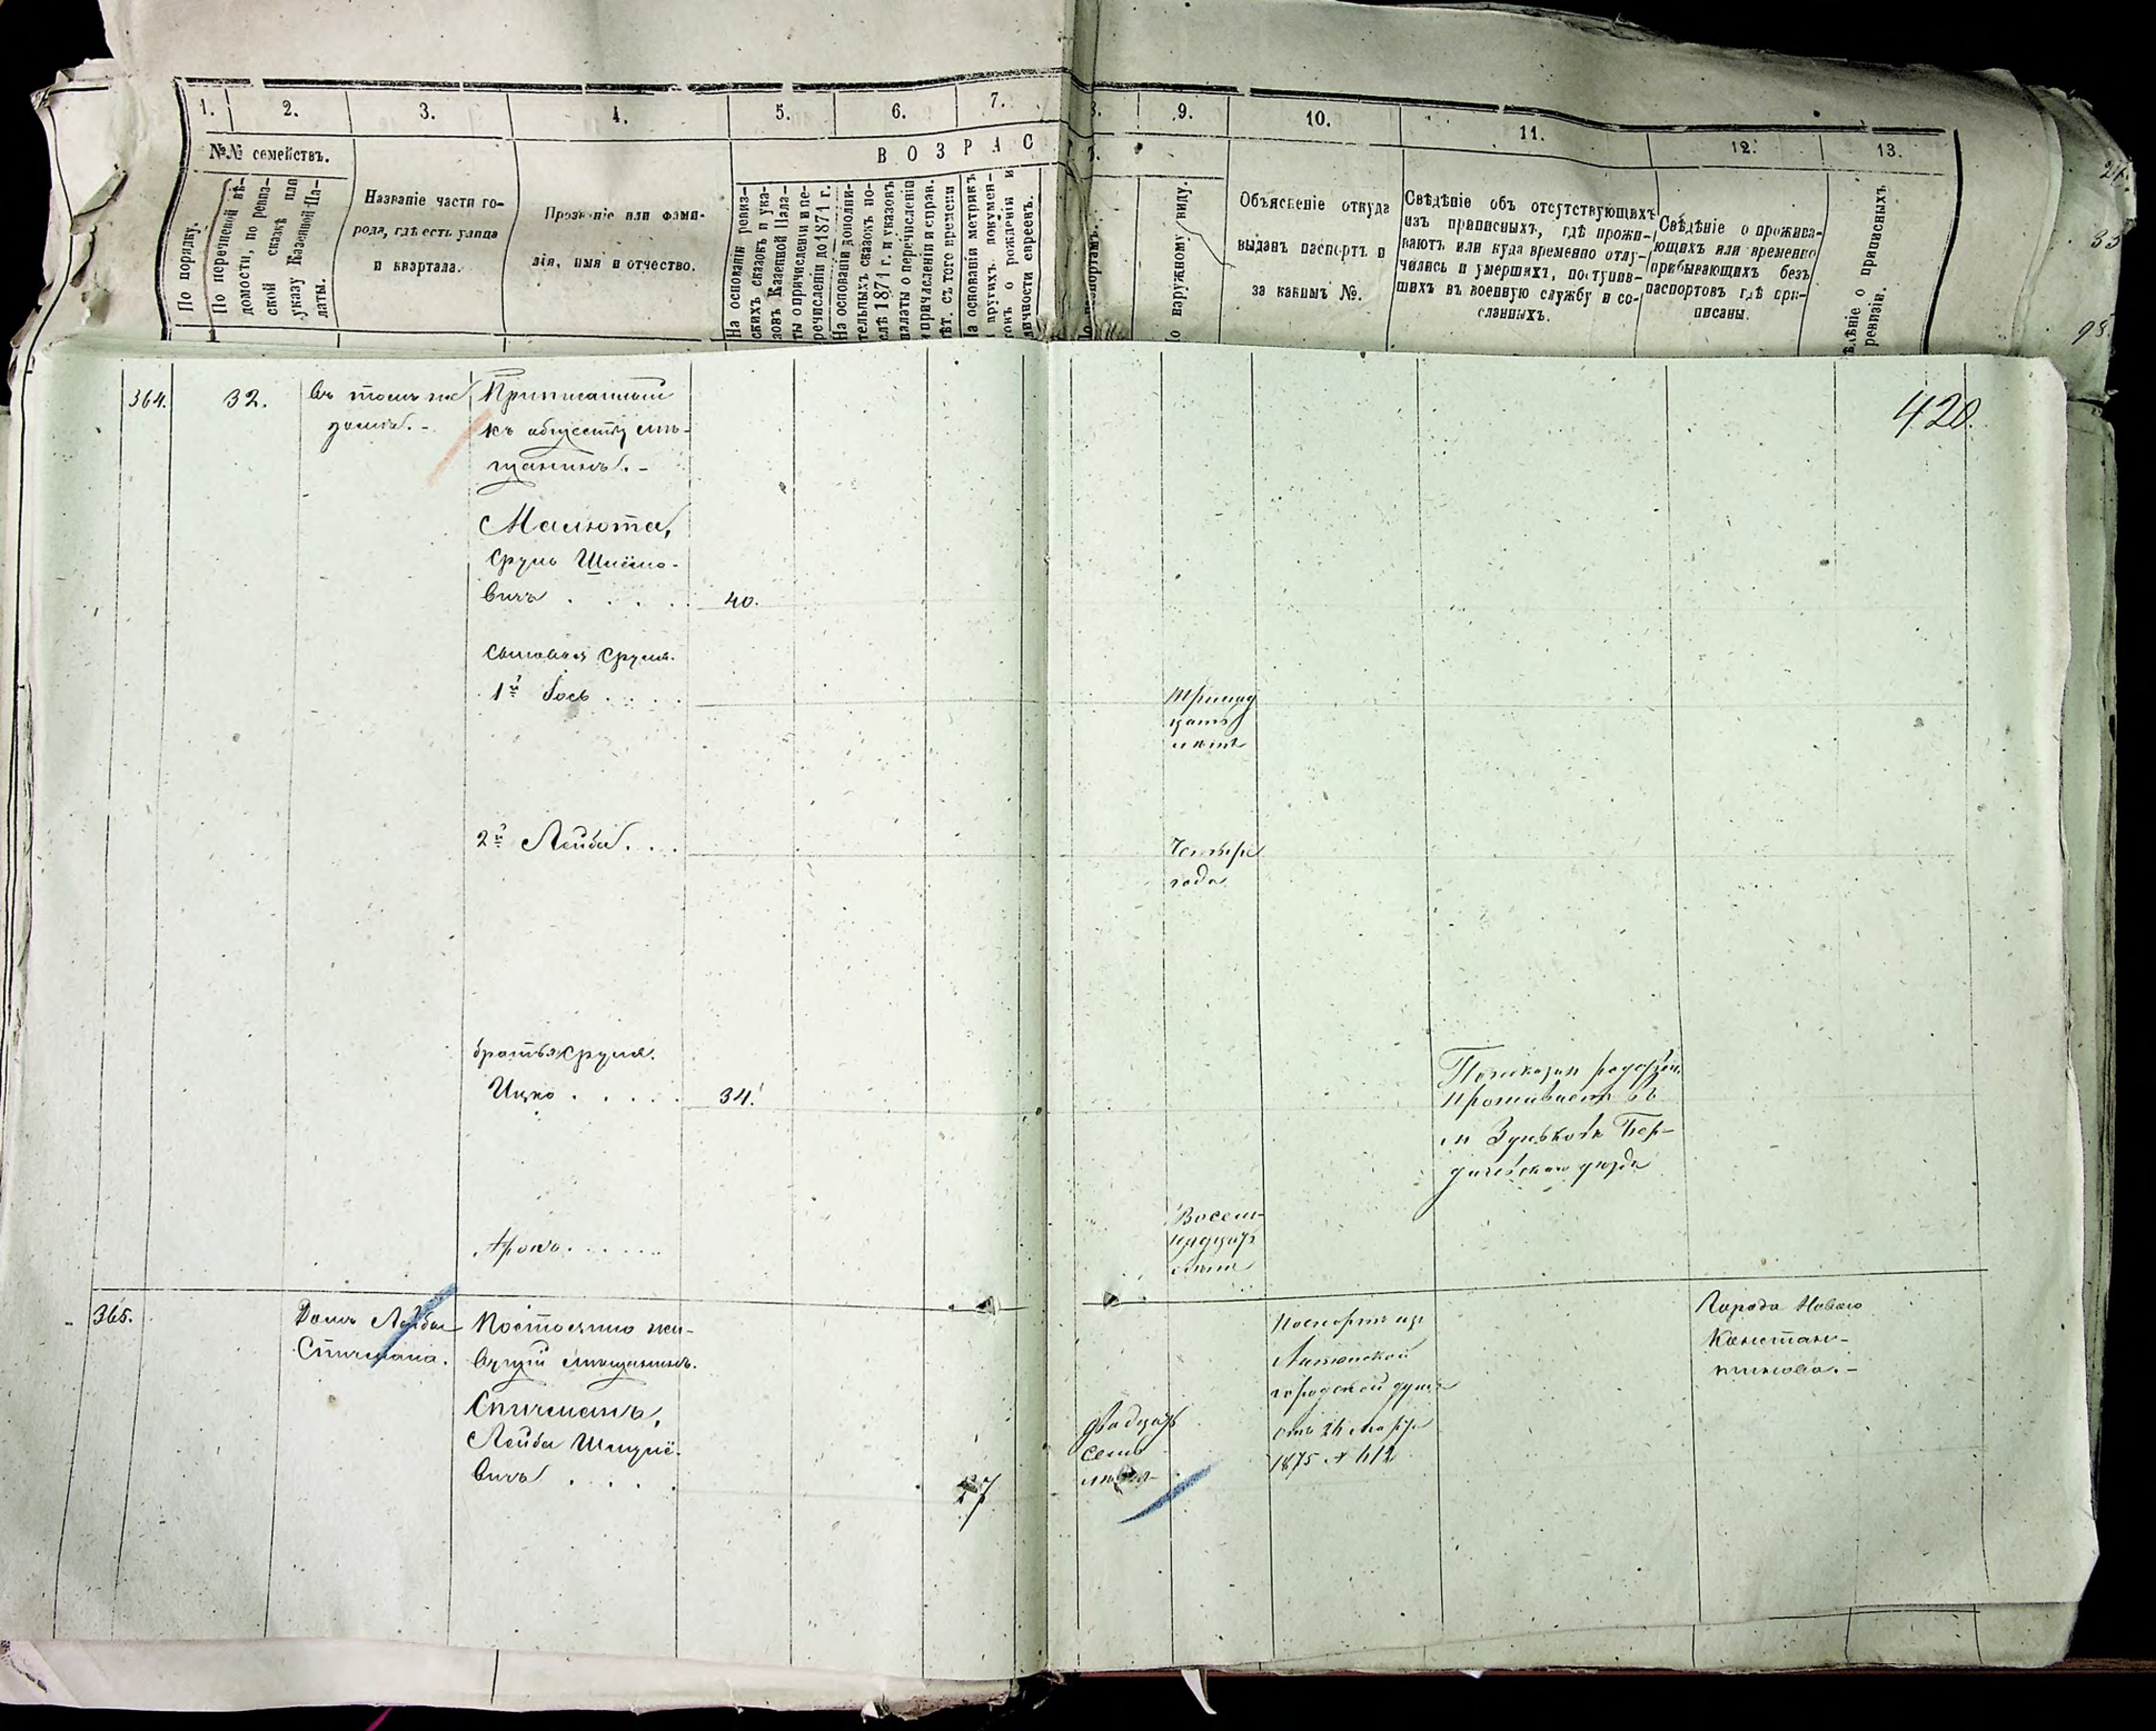 1. 2. 3. 4. 5. 6. 7. 8. 9. 10. 11. 12. 13.
№№ семействъ.
В О З Р А С Т
По порядку.
По перечневой вѣ-
домости, по ревиз-
ской сказкѣ или
указу Казенной Па-
латы.
Названіе части го-
рода, гдѣ есть улица
и квартала.
Прозваніе или фами-
лія, имя и отчество.
На основаніи ревиз-
скихъ сказокъ и ука-
зовъ Казенной Пала-
ты о причисленіи и пе-
речисленіи до 1871 г.
На основаніи дополни-
тельныхъ сказокъ по-
слѣ 1871 г. и указовъ
палаты о перечисленіи
и причисленіи и справ.
лѣт. съ того времени
На основаніи метрикъ
и другихъ докумен-
товъ о рожденіи и
личности евреевъ.
По паспортамъ.
По наружному виду.
Объясненіе откуда
выданъ паспортъ и
за какимъ №.
Свѣдѣніе объ отсутствующихъ
изъ приписныхъ, гдѣ прожи-
ваютъ или куда временно отлу-
чились и умершихъ, поступив-
шихъ въ военную службу и со-
сланныхъ.
Свѣдѣніе о прожива-
ющихъ или временно
прибывающихъ безъ
паспортовъ гдѣ при-
писаны.
ѣдѣніе о приписныхъ
ревизіи.
420.
364.
32.
Въ томъ же
домѣ. -
Приписанный
къ обществу мѣ-
щанинъ. -
Малюта,
Сруль Шлёмо-
вичъ . . . . .
40.
Сыновья Сруля.
1й Іось . . . .
Тринад
цать
лѣтъ
2й Лейба . . .
Четыре
года
братья Сруля.
Ицко . . . . .
34.
проживаетъ въ
м Зуньковѣ Бер-
дичевскаго уѣзда
Аронъ . . . . . .
Восем-
надцать
лѣтъ
365.
Домъ Лейбы
Спичмана.
Постоянно жи-
вущій мѣщанинъ.
Спичманъ,
Лейба Шмулё-
вичъ . . . .
27
двадцать
семь
лѣтъ
Паспортъ изъ
Литинской
городской думы
1875 № 412
Города Новаго
Констан-
тинова. -